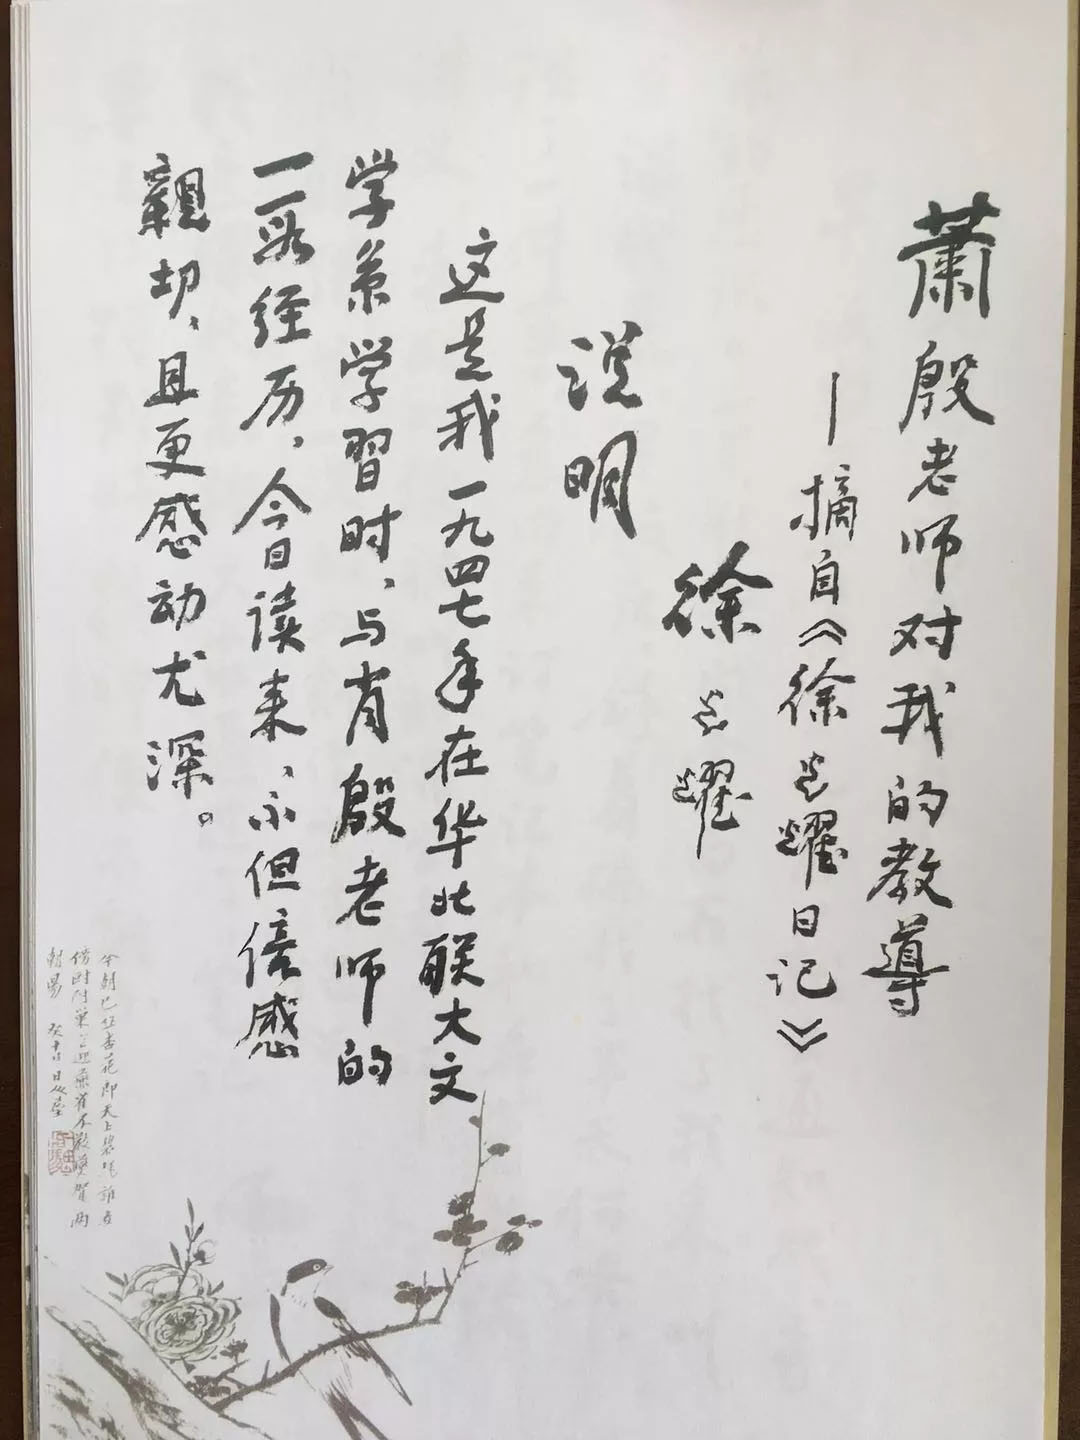 萧殷老师对我的教导
—摘自《徐光耀日记》
徐光耀
说明
这是我一九四七年在华北联大文
学系学习时、与肖殷老师的
一段经历，今日读来、不但倍感
親切、且更感动尤深。